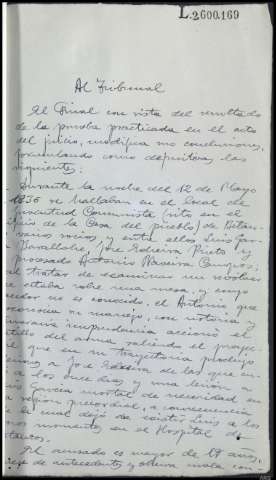 L.2600.169
Al Tribunal
El Fiscal con vista del resultado
de la prueba practicada en el acto
del juicio, modifica sus conclusiones,
formulando como definitivas las
siguientes:
Durante la noche del 12 de Mayo
1936 se hallaban en el local de
Juventud Comunista (sito en el
de la Casa del pueblo) de Betan-
varios socios, y entre ellos Luis Gar-
Barallobre, Jose Edreira Prieto y
procesado Antonio Naveira
al tratar de examinar un revolver
e estaba sobre una mesa, y cuyo
no es conocido, el Antonio que
su manejo, con notoria y
imprudencia accionó el
tillo del arma saliendo el proyec-
il que en su trayectoria produjo
a Jose Edreira de las que cu-
a los once dias y una lesión a
Garcia mortal de necesidad en
region precordial, a consecuencia
e la cual dejó de existir Luis a los
momentos en el Hospital de
El acusado es mayor de 19 años,
de antecedentes y observa mala con-